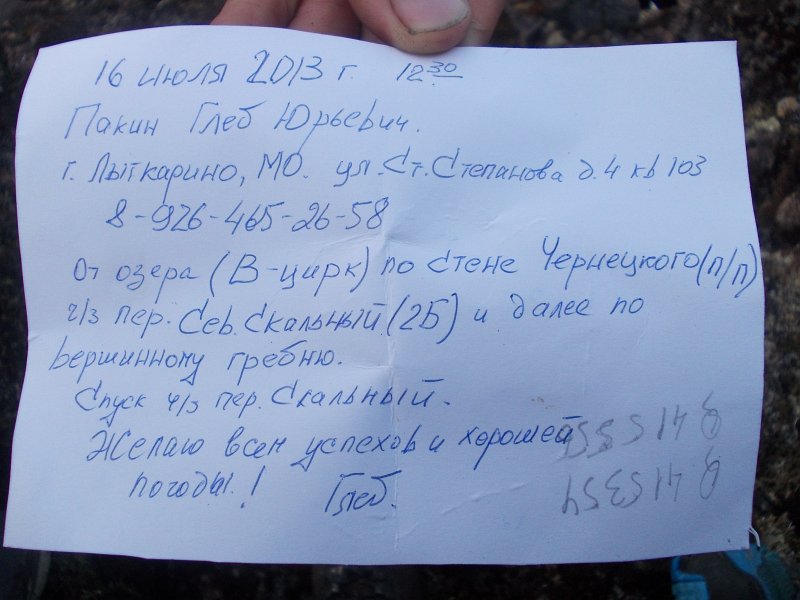 16 июля 2013 г. 12 30
Пакин Глеб Юрьевич.
г. Лыткарино, МО. ул. Ст. Степанова д. 4 кв 103
8-926-465-26-58
От озера (В-цирк) по стене Чернецкого (п/п)
ч/з пер. Сев. Скальный (2Б) и далее по
вершинному гребню.
Спуск ч/з пер. Скальный.
Желаю всем успехов и хорошей
погоды!
Глеб.